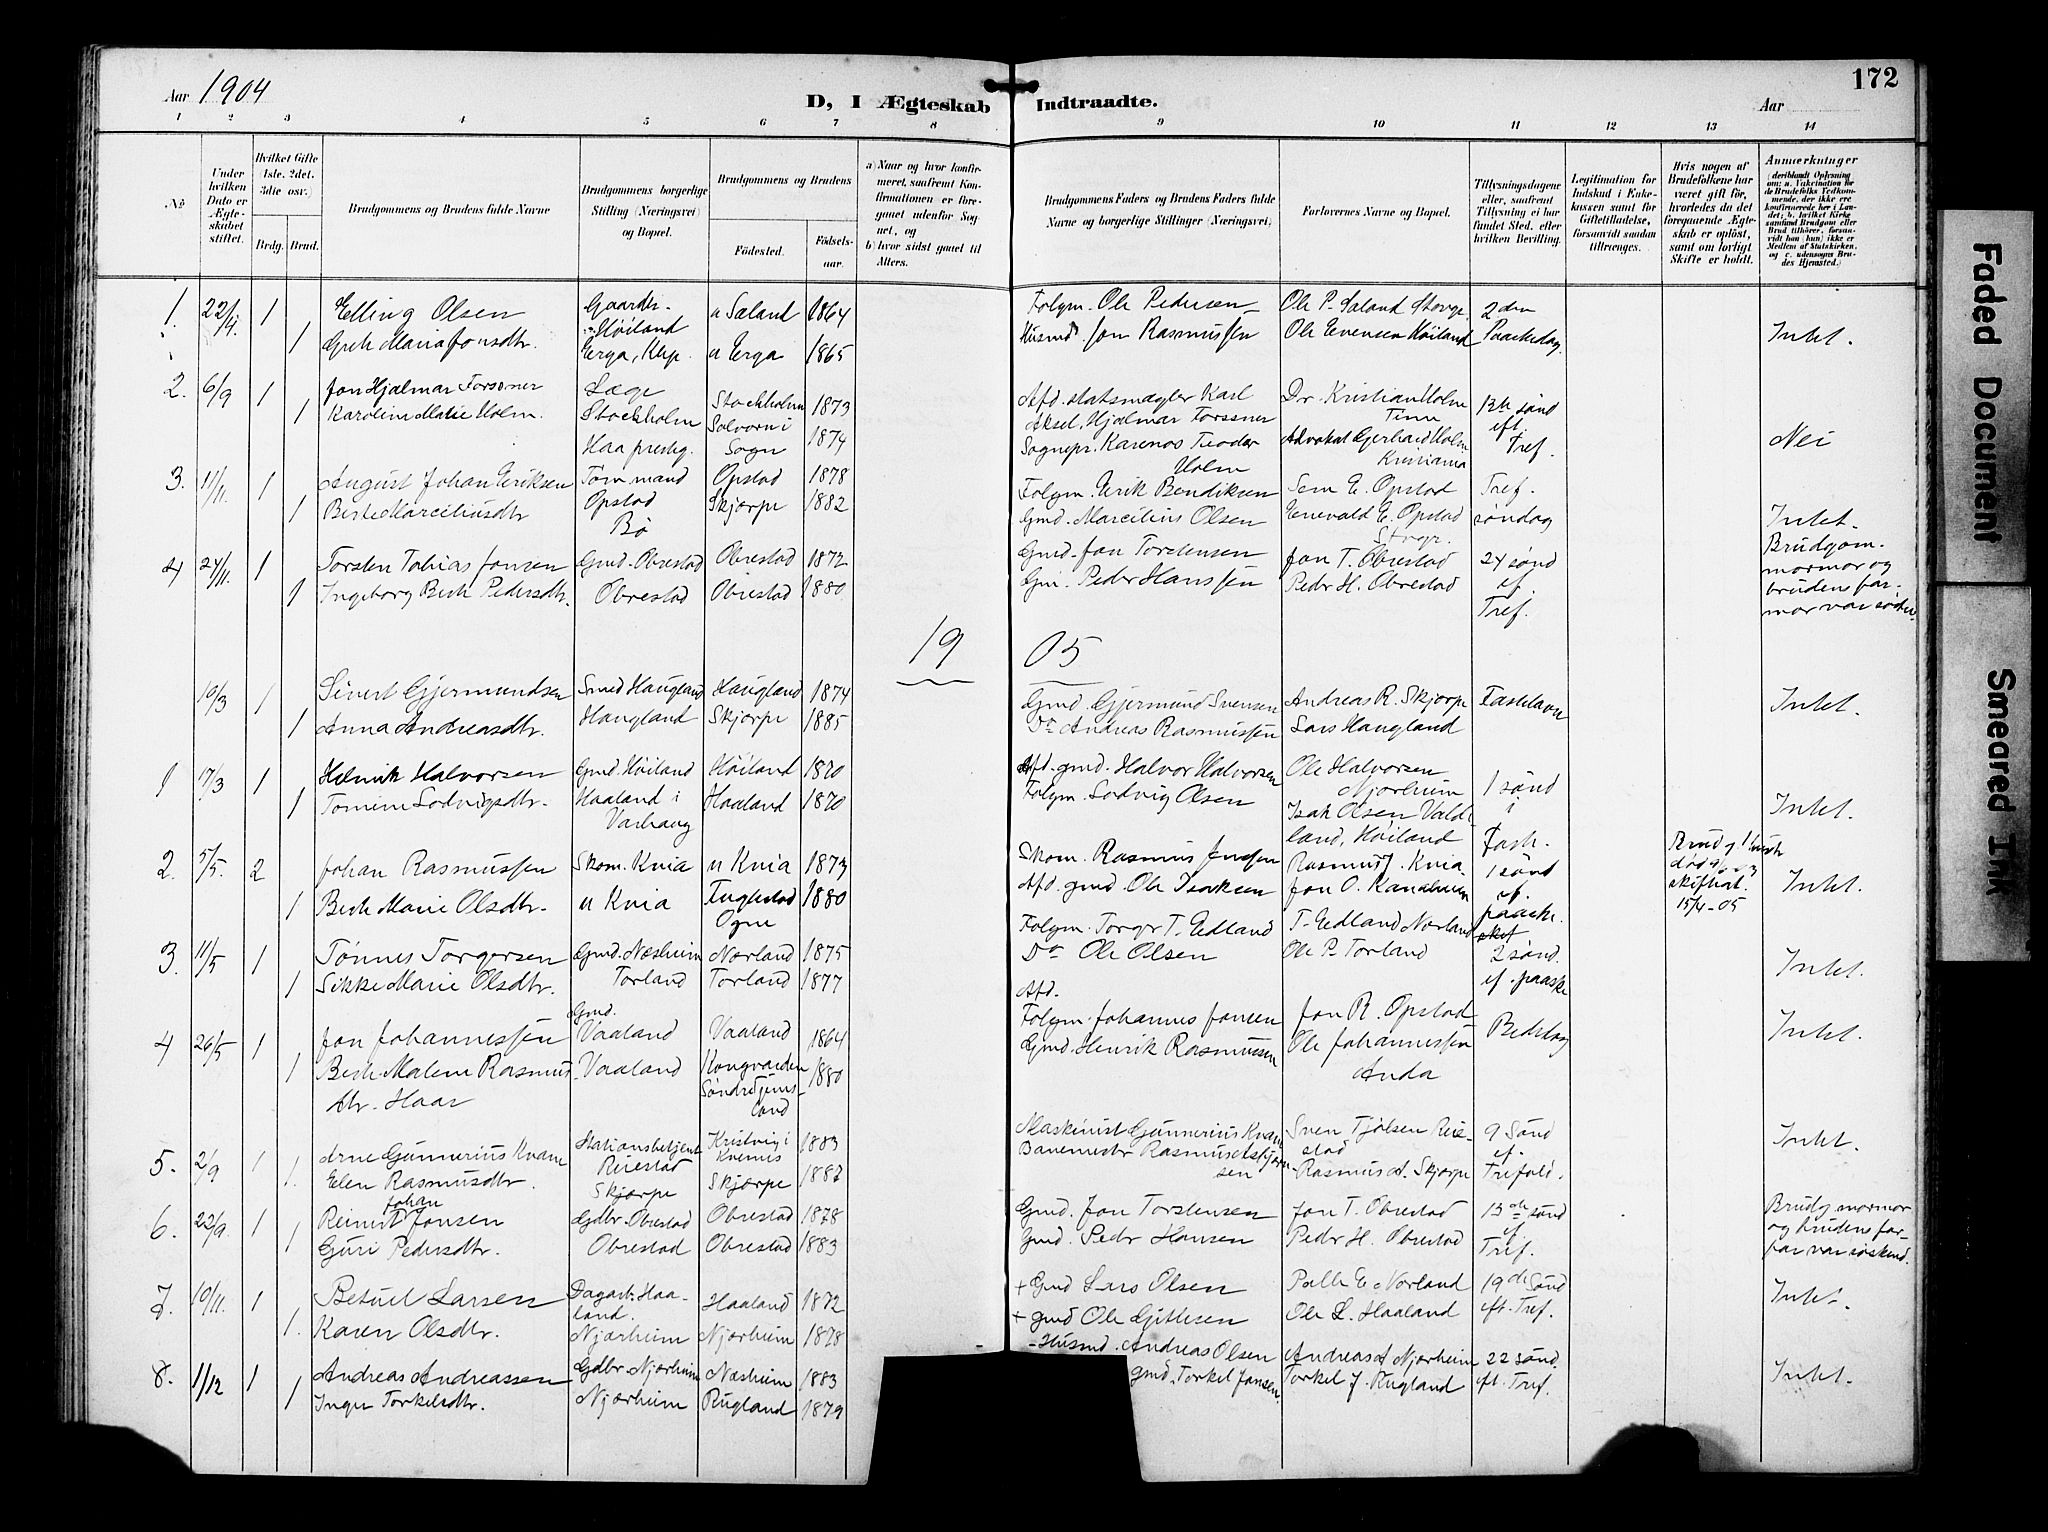 Aar 1904
D, I Ægteskab Indtraadte.
Aar
172
1 2 3 4 5 6 7 8 9 10 11 12 13 14
No
Under hvilken Dato er Ægteskabet stiftet.
Hvilket Gifte (1ste, 2det, 3die osv.)
Brdg. Brud.
Brudgommens og Brudens fulde Navne
Brudgommens borgerlige Stilling (Næringsvei) og Bopæl.
Brudgommens og Brudens
Fødested.
Fødselsaar.
a) Naar og hvor konfirmeret, saafremt Konfirmationen er foregaaet udenfor Sognet, og
b) hvor sidst gaaet til Alters.
Brudgommens Faders og Brudens Faders fulde Navne og borgerlige Stillinger (Næringsvei).
Forlovernes Navne og Bopæl.
Tillysningsdagene eller, saafremt Tillysning ei har fundet Sted, efter hvilken Bevilling.
Legitimation for Indskud i Enkekassen samt for Giftetilladelse, forsaavidt saadan tiltrænges.
Hvis nogen af Brudefolkene har været gift før, hvorledes da det foregaaende Ægteskab er opløst, samt om lovligt Skifte er holdt.
Anmerkninger (deriblandt Oplysning om: a. Vakcination for de Brudefolks Vedkommende, der ikke ere konfirmerede her i Landet; b. hvilket Kirkesamfund Brudgom eller Brud tilhører, forsaavidt han (hun) ikke er Medlem af Statskirken, og c. udensogns Brudes Hjemsted.)
1. 22/4. 1 Elling Olsen Gaardbr. Høiland u Saland 1864 Folgm. Ole Pedersen Ole P. Saland Stavgr. 2den Paaskedag.
1 Greh Maria Jonsdtr. Erga, Klep u Erga 1865 Husmd. Jon Rasmussen Ole Evensen Høiland Intet.
2. 6/9 1 Jon Hjalmar Forssner Læge Stockholm Stockholm 1873 Afd. statsmægler Karl Aksel Hjalmar Forssner Dr. Kristian Holm Time 13de sønd eft. Tref.
1 Karoline Marie Holm. Haa prestg. Solvorn i Sogn 1874 Sognepr. Karenos Teodor Holm Advokat Gerhard Holm Kristiania Nei
3. 11/11. 1 August Johan Eriksen Tømmermand Opstad Opstad 1878 Folgm. Erik Bendiksen Sem E. Opstad Tref. søndag
1 Berte Marciliusdtr Bø Skjærpe 1882 Gmd. Marcilius Olsen Enevald E. Opstad Stavgr. Intet.
4 24/11. 1 Torsten Tobias Jonsen Gmd. Obrestad Obrestad 1872 Gmd. Jon Torstensen Jon T. Obrestad 24 sønd ef. Tref.
1 Ingeborg Berte Pedersdtr. Obrestad Obrestad 1880. Gm. Peder Hanssen Peder H. Obrestad Brudgom. mormor og brudens farmor var søstre.
19 05
10/3 1 Sivert Gjermundsen Smed Haugland Haugland 1874 Gmd. Gjermund Svensen Andreas R. Skjærpe Fastelavn
1 Anna Andreasdtr. Haugland Skjærpe 1885 Do Andreas Rasmussen Lars Haugland Intet.
1 17/3 1 Henrik Halvorsen Gmd. Høiland Høiland 1870 Afd. gmd. Halvor Halvorsen Ole Halvorsen Njærheim 1 sønd i Fast.
1 Tomine Lodvigsdtr. Haaland i Varhaug Haaland 1870 Folgm. Lodvig Olsen Isak Olsen Valdland, Høiland Intet.
2. 5/5. 2 Johan Rasmussen Skom. Kvia u Kvia 1873 Skom. Rasmus Jensen Rasmus J. Kvia 1 sønd ef. paaske.
1 Berte Marie Olsdtr. u Kvia Fuglestad Ogne 1880 Afd. gmd. Ole Isaksen Jon O. skifteat. 15/4-05 Intet.
3. 11/5 1 Tønnes Torgersen Gmd. Næsheim Nærland 1875 Folgm. Torger T. Edland T. Edland Nærland 2 sønd. ef. paaske
1 Sikke Marie Olsdtr. Torland Torland 1877 Do Ole Olsen Ole P. Torland Intet.
4 26/5 1 Jon Johannessen Gmd. Vaaland Vaaland 1864 Afd. Folgm. Johannes Jonsen Jon R. Opstad Bededag
1 Berte Malene Rasmusdtr. Haar Vaaland Kongvarden Søndre Time land 1880 Gmd. Henrik Rasmussen Ole Johannessen Anda Intet.
5. 2/9 1 Arne Gunnerius Kvam Stationsbetjent Reiestad Kristvig i Kvernes 1883 Maskinist Gunnerius Kvam Sven Tjølsen Reiestad 9 sønd ef. Trefold.
1. Elen Rasmusdtr. Skjærpe Skjærpe 1882 Banemester Rasmus Asbjørnsen Rasmus A. Skjærpe Intet.
6. 22/9. 1 Reinert Johan Jonsen Gdbr. Obrestad Obrestad 1878 Gmd. Jon Torstensen Jon T. Obrestad 13de sønd ef Tref.
1 Guri Pedersdtr. Obrestad Obrestad 1883 Gmd. Peder Hansen Peder H. Obrestad Brudg. mormor og brudens farfar var søskend.
7. 10/11. 1 Betuel Larsen Dagarb. Haaland. Haaland 1872 + Gmd Lars Olsen Palle E Nærland 19de Sønd eft. Tref.
1. Karen Olsdtr. Njærheim Njærheim 1878 + gmd Ole Gitlesen Ole L. Haaland Intet.
8. 1/12 1 Andreas Andreassen Gdbr. Njærheim Næsheim 1883 Husmd. Andreas Olsen Andreas A Njærheim 22 sønd. eft. Tref.
1 Inger Torkelsdtr. Njærheim Rugland 1879 gmd. Torkel Jonsen. Torkel J. Rugland Intet.
Faded Document
Smeared Ink